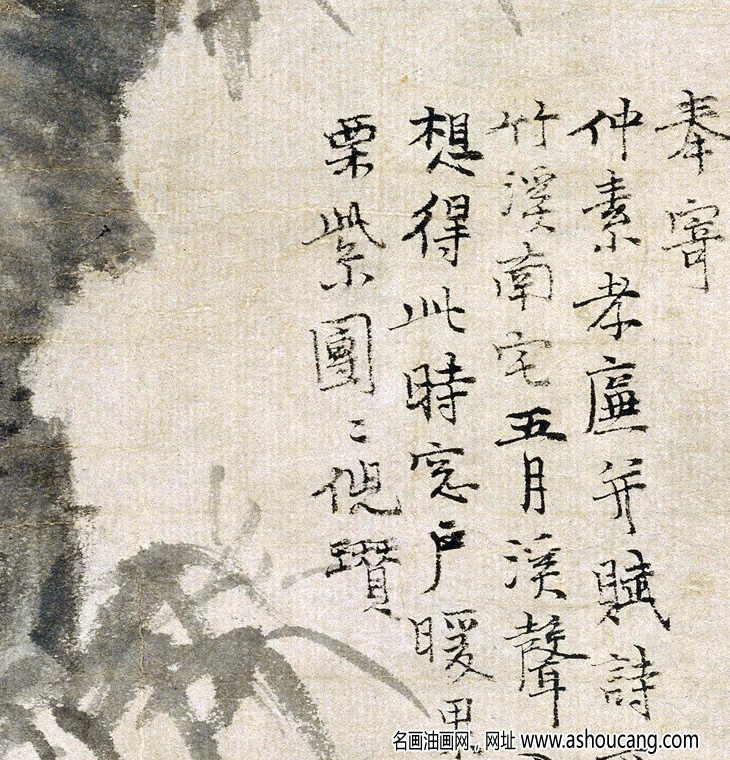 奉寄
仲素孝廉并賦詩
竹溪南宅五月溪聲
想得此時窓戶暖
栗紫團〻倪瓚
名画油画网，网址 www.ashoucang.com